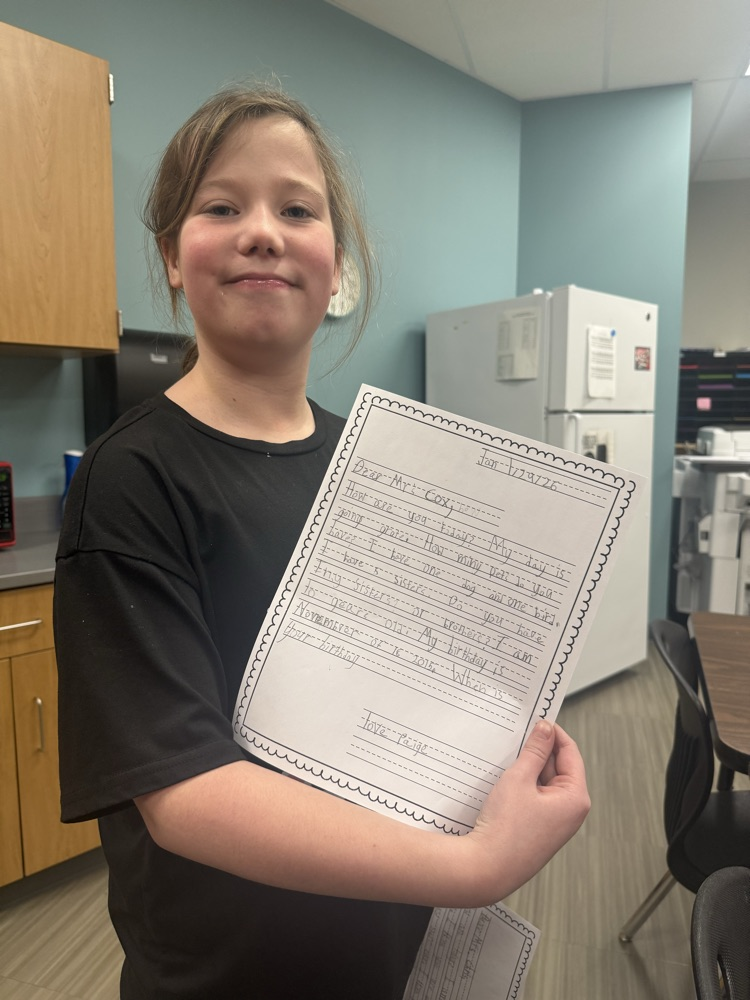 Jan 1/29/26
Dear Mrs Cox,
How are you today? My day is
going great. How miny pets do you
have? I have one dog and one bird.
I have 5 sisters. Do you have
any sisters or brothers? I am
10 years old. My birthday is
November of 16 2015. When is
your birthday
love Paige